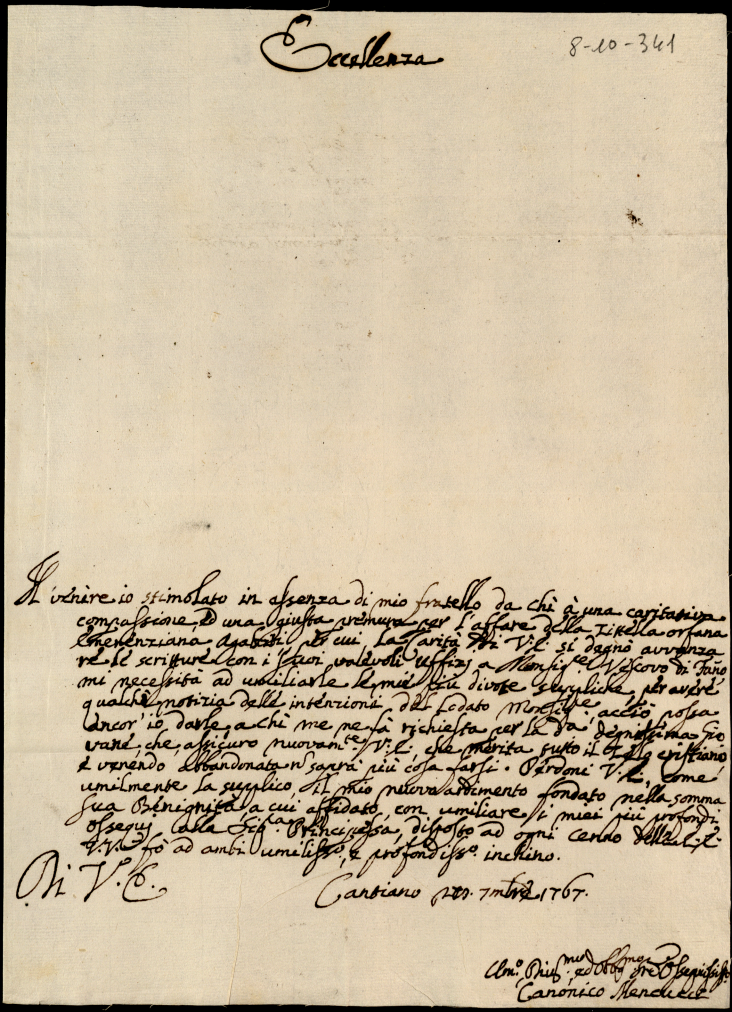 8-10-341
Eccellenza
Il venire io stimolato in assenza di mio fratello da chi à una caritativa
compassione, ed una giusta premura per l'affare della Zittella orfana
Emerenziana Agabiti per cui la Carità di V.E. si degnò avvanza
re le scritture con i suoi valevoli uffizj a Monsig.re Vescovo di Fano
mi necessità ad umiliarle le mie più divote suppliche, per avere
qualche notizia delle intenzioni del lodato Monsig.re, acciò possa
ancor' io darle a chi me ne fà richiesta per la da dignissima Gio
vane, che assicuro nuovam.te V.E. che merita tutto il Zelo cristiano
e venendo abbandonata n saprà più cosa farsi. Perdoni V.E., come
umilmente la supplico, il mio nuovo ardimento fondato nella somma
sua Benignità, a cui affidato, con umiliare i miei più profondi
ossequj alla Principessa, disposto ad ogni cenno dell'
V.V. fò ad ambi umilisso, e profondisso. inchino.
Di V. E.
Cantiano 7mbre 1767.
Umo. Divmo ed Obbmo Ossequiss
Canonico Menducci